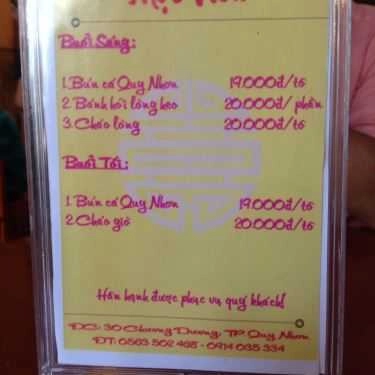 Buổi Sáng:
1. Bún cá Quy Nhơn 19.000đ/tô
2. Bánh hỏi lòng heo 20.000đ/ phần
3. Cháo lòng 20.000đ/tô
Buổi Tối:
1. Bún cá Quy Nhơn 19.000đ/tô
2. Cháo giò 20.000đ/tô
Hân hạnh được phục vụ quý khách!
ĐC: 30 Chương Dương, TP. Quy Nhơn
ĐT: 0563 502 468 - 0914 035 334